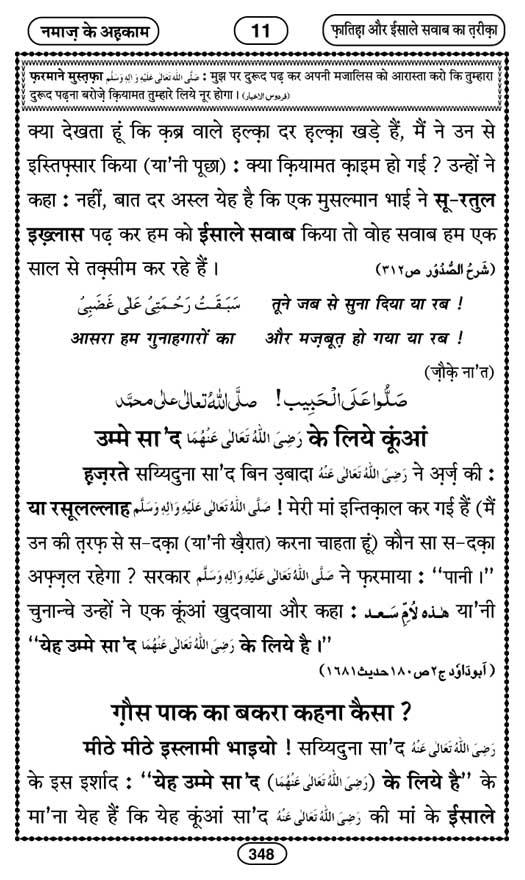 नमाज़ के अहकाम
11
फ़ातिह़ा और ईसाले सवाब का त़रीक़ा
फ़रमाने मुस्त़फ़ा صَلَّى اللهُ تَعَالٰى عَلَيْهِ وَاٰلِهٖ وَسَلَّم : मुझ पर दुरूद पढ़ कर अपनी मजालिस को आरास्ता करो कि तुम्हारा
दुरूद पढ़ना बरोज़े क़ियामत तुम्हारे लिये नूर होगा । (فردوس الاخبار)
क्या देखता हूं कि क़ब्र वाले ह़ल्क़ा दर ह़ल्क़ा खड़े हैं, मैं ने उन से
इस्तिफ़्सार किया (या'नी पूछा) : क्या क़ियामत क़ाइम हो गई ? उन्हों ने
कहा : नहीं, बात दर अस्ल येह है कि एक मुसल्मान भाई ने सू-रतुल
इख़्लास पढ़ कर हम को ईसाले सवाब किया तो वोह सवाब हम एक
साल से तक़्सीम कर रहे हैं । (شَرْحُ الصُّدُوْر ص۳۱۲)
سَبَقَتْ رَحْمَتِيْ عَلٰى غَضَبِيْ तूने जब से सुना दिया या रब !
आसरा हम गुनाहगारों का और मज़बूत़ हो गया या रब !
(ज़ौके़ ना'त)
صَلُّوا عَلَى الْحَبِيب! صلَّى اللهُ تعالٰى على محمَّد
उम्मे सा'द رَضِىَ اللهُ تَعَالٰى عَنْهُمَا के लिये कूंआं
ह़ज़रते सय्यिदुना सा'द बिन उ़बादा رَضِىَ اللهُ تَعَالٰى عَنْهُ ने अ़र्ज़ की :
या रसूलल्लाह صَلَّى اللهُ تَعَالٰى عَلَيْهِ وَاٰلِهٖ وَسَلَّم ! मेरी मां इन्तिक़ाल कर गई हैं (मैं
उन की त़रफ़ से स-दक़ा (या'नी ख़ैरात) करना चाहता हूं) कौन सा स-दक़ा
अफ़्ज़ल रहेगा ? सरकार صَلَّى اللهُ تَعَالٰى عَلَيْهِ وَاٰلِهٖ وَسَلَّم ने फ़रमाया : “पानी ।”
चुनान्चे उन्हों ने एक कूंआं खुदवाया और कहा : هٰذِهٖ لِاُمِّ سَعد या'नी
“येह उम्मे सा'द رَضِىَ اللهُ تَعَالٰى عَنْهُمَا के लिये है ।”
(ابوداوٗد ج۲ص۱۸۰حديث۱۶۸۱)
ग़ौस पाक का बकरा कहना कैसा ?
मीठे मीठे इस्लामी भाइयो ! सय्यिदुना सा'द رَضِىَ اللهُ تَعَالٰى عَنْهُ
के इस इर्शाद : “येह उम्मे सा'द (رَضِىَ اللهُ تَعَالٰى عَنْهُمَا) के लिये है” के
मा'ना येह हैं कि येह कूंआं सा'द رَضِىَ اللهُ تَعَالٰى عَنْهُ की मां के ईसाले
348